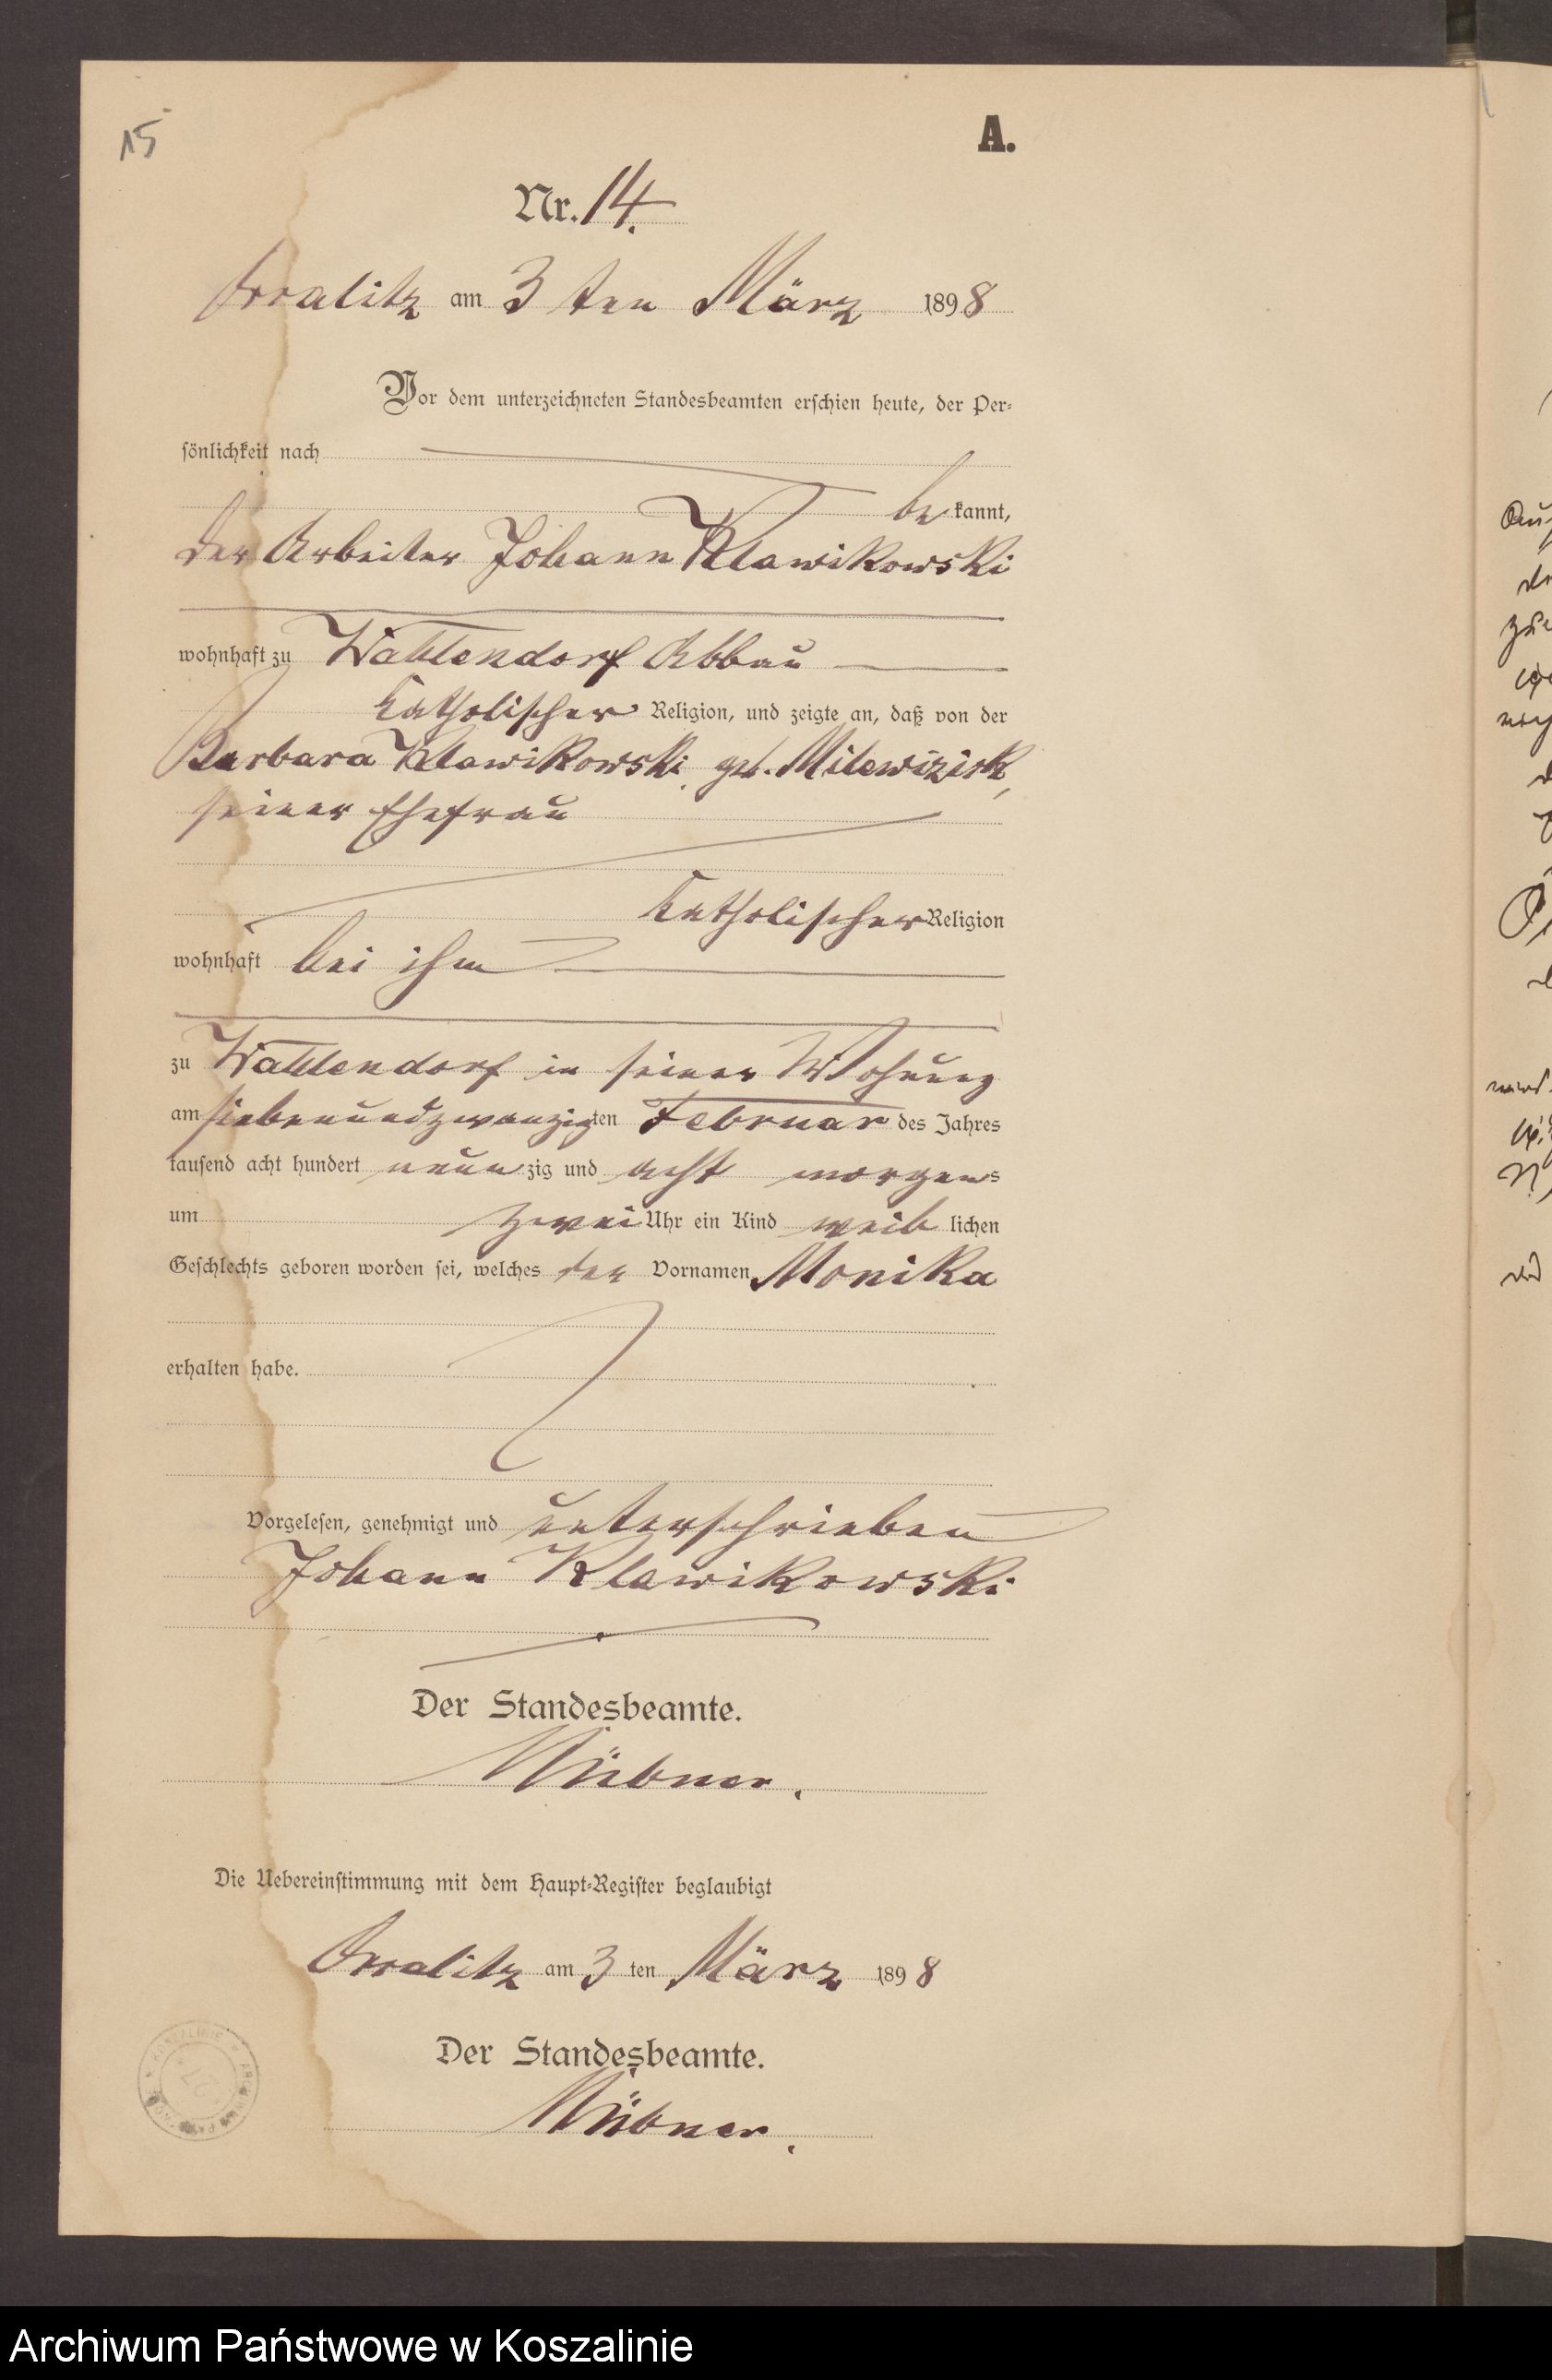 15
A.
Nr. 14.
am 3 ten März 1898
Vor dem unterzeichneten Standesbeamten erschien heute, der Per-
sönlichkeit nach
be kannt,
der Arbeiter Johann Klawikowski
wohnhaft zu Wahlendorf Abbau
katholischer Religion, und zeigte an, daß von der
Barbara Klawikowski geb.
seiner Ehefrau
katholischer Religion
wohnhaft bei ihm
zu Wahlendorf in seiner Wohnung
am siebenundzwanzigten Februar des Jahres
tausend acht hundert neun zig und acht morgens
um zwei Uhr ein Kind weib lichen
Geschlechts geboren worden sei, welches den Vornamen Monika
erhalten habe.
Vorgelesen, genehmigt und unterschrieben
Johann Klawikowski
Der Standesbeamte.
Die Uebereinstimmung mit dem Haupt-Register beglaubigt
am 3 ten März 1898
Der Standesbeamte.
Archiwum Państwowe w Koszalinie